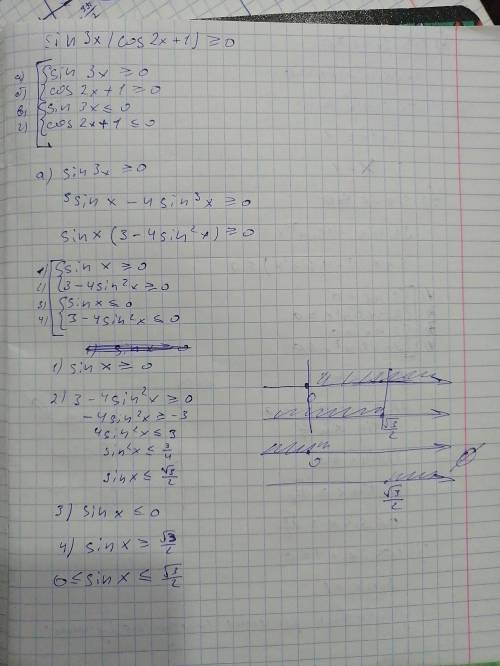 sin 3x (cos 2x + 1) ≥ 0
а) sin 3x ≥ 0
б) cos 2x + 1 ≥ 0
в) sin 3x ≤ 0
г) cos 2x + 1 ≤ 0
а) sin 3x ≥ 0
3 sin x - 4 sin³x ≥ 0
sin x (3 - 4 sin²x) ≥ 0
1) sin x ≥ 0
2) 3 - 4 sin²x ≥ 0
3) sin x ≤ 0
4) 3 - 4 sin²x ≤ 0
1) sin x ≥ 0
2) 3 - 4 sin²x ≥ 0
-4 sin²x ≥ -3
4 sin²x ≤ 3
sin²x ≤ 3/4
sin x ≤ √3/2
3) sin x ≤ 0
4) sin x ≥ √3/2
0 ≤ sin x ≤ √3/2
0
√3/2
0
√3/2
∅